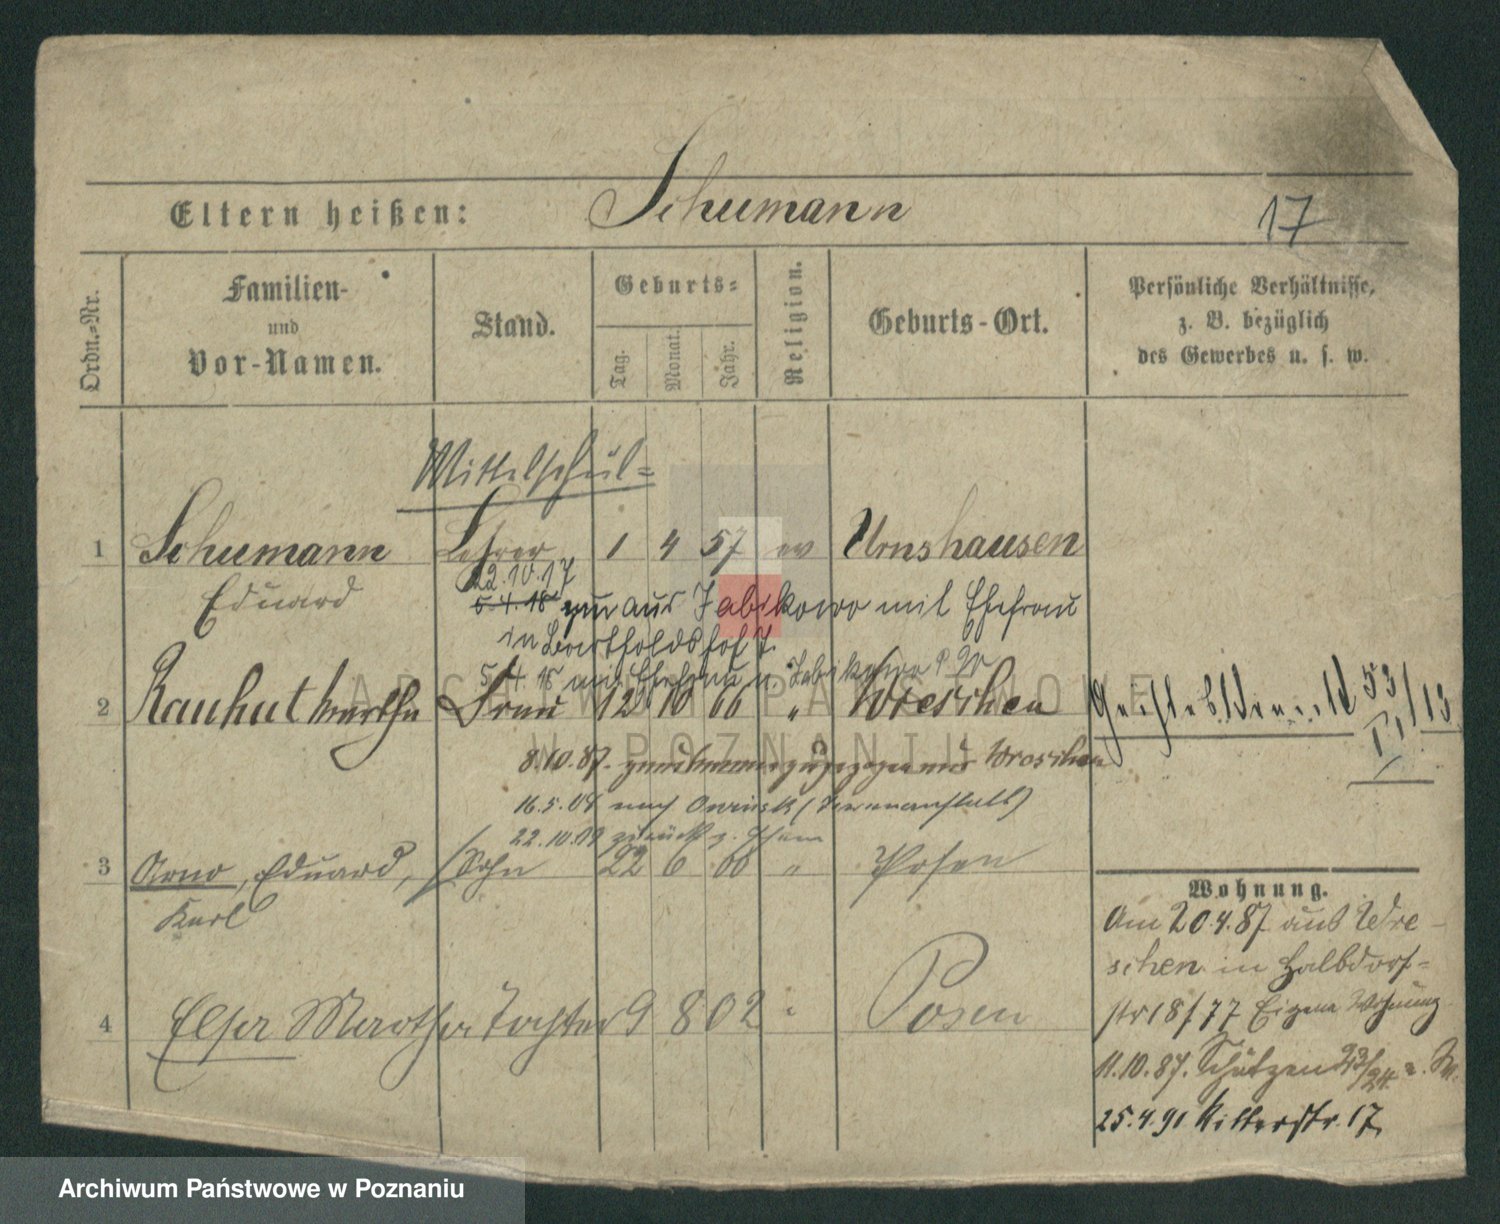 Eltern heißen: Schumann
17
Ordn.-Nr.
Familien- und Vor-Namen.
Stand.
Geburts-
Tag.
Monat.
Jahr.
Religion.
Geburts-Ort.
Persönliche Verhältnisse, z. B. bezüglich des Gewerbes u. s. w.
Mittelschul-
1 Schumann Lehrer 1 4 57 ev Urnshausen
Eduard
22.10.17
5.4.18 aus Zabikowo mit Ehefrau
in
5.4.18 mit Ehefrau n. Zabikowo
2 Rauhut Martha Frau 12 10 66 " Wreschen
53/13
8.10.87. zugezogen aus Wreschen
16.5.08 nach Owinsk (Irrenanstalt)
22.10.09 zurück
3 Arno, Eduard, Sohn 22 6 00 " Posen
Karl
4 Elsa Martha Tochter 9 8 02 " Posen
Wohnung.
Am 20.4.87 aus Wre-
schen in Halbdorf-
str 18/77 Eigene Wohnung
11.10.87. Schützen 23/24
25.4.91 Ritterstr. 17
ARCHIWUM PAŃSTWOWE
W POZNANIU
Archiwum Państwowe w Poznaniu